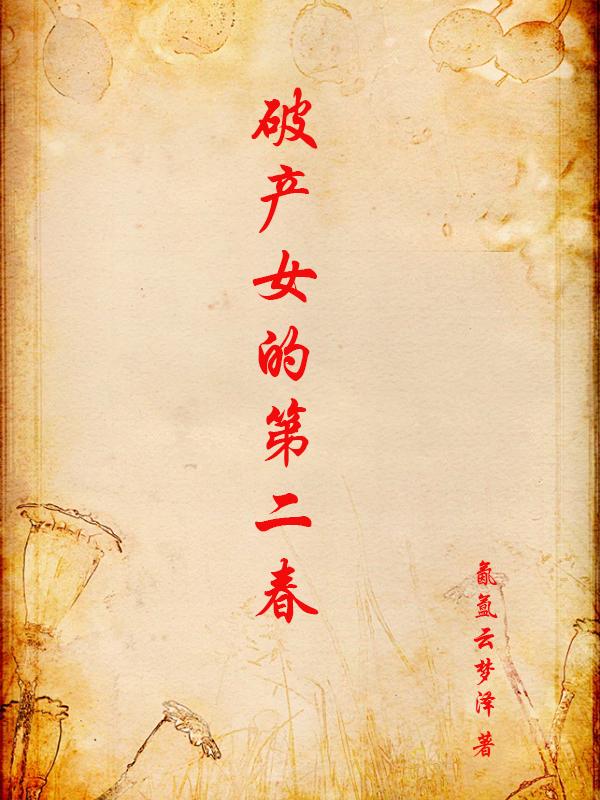 破产女的第二春
氤氲云梦泽 著